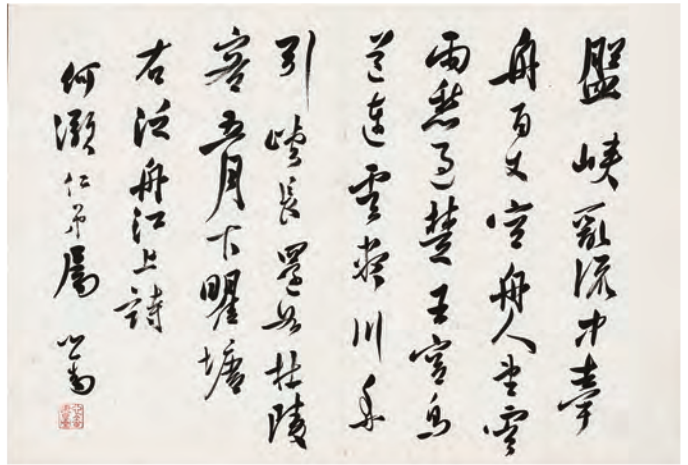 盤峽亂流中牽
舟百丈空舟人望雲
雨愁過楚王宮鳥
道連雲棧川
引峽長還如杜陵
客五月下瞿塘
右泛舟江上詩
何灝仁弟屬 心畬